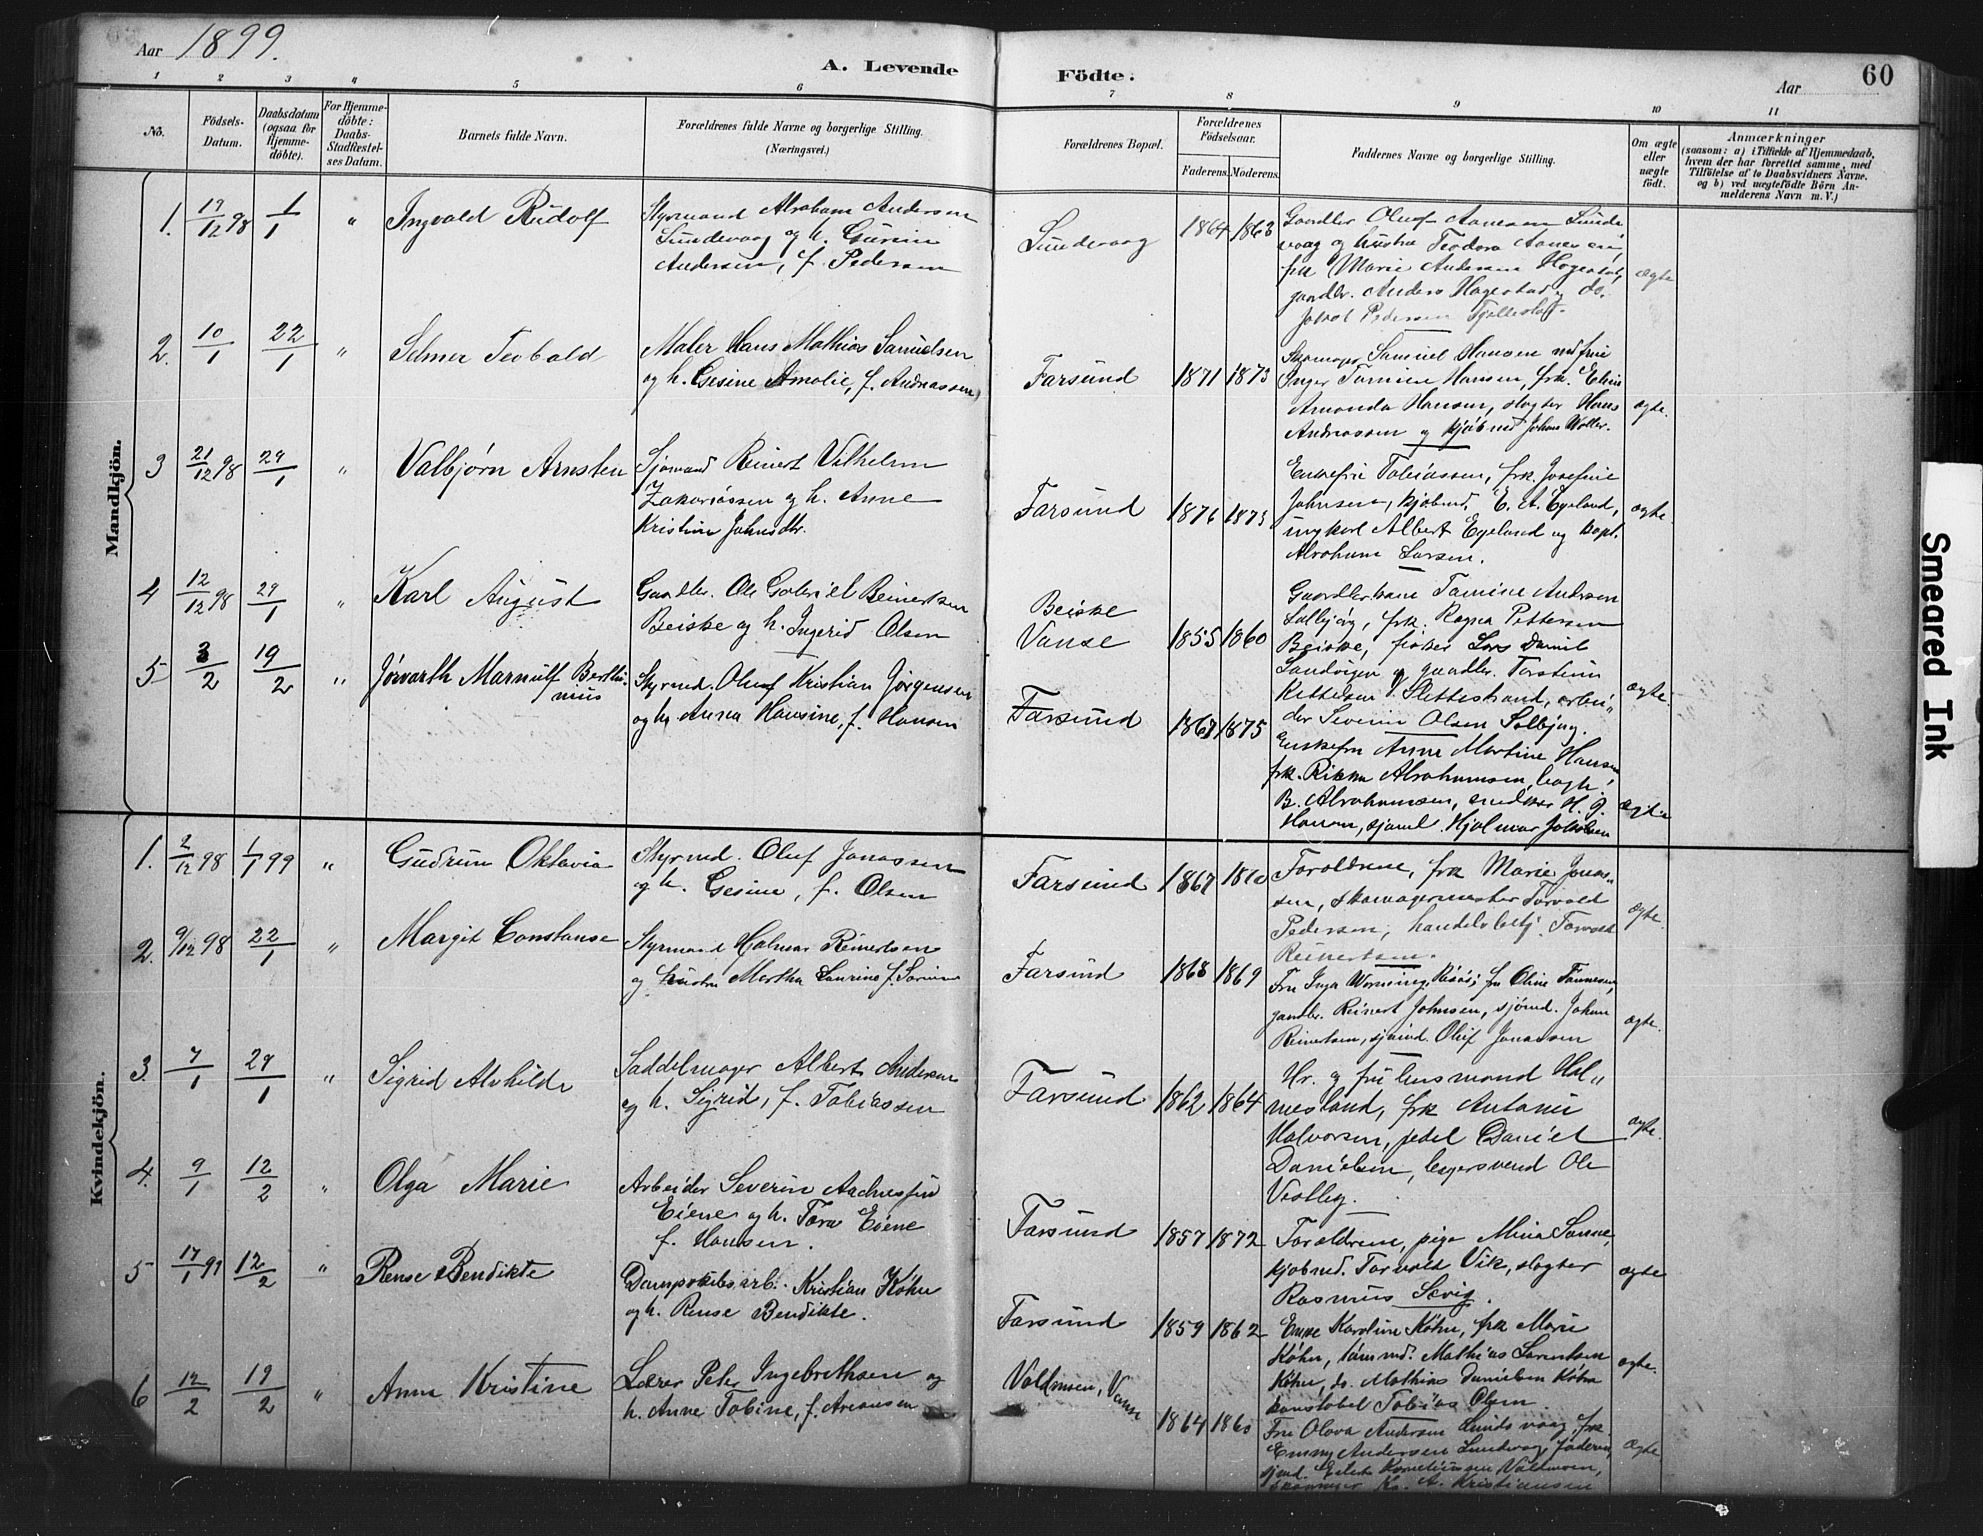 Aar 1899.
A. Levende
Födte.
Aar
60
1 2 3 4 5 6 7 8 9 10 11
No.
Födsels-
Datum.
Daabsdatum
(ogsaa for
Hjemme-
döbte).
For Hjemme-
döbte:
Daabs-
Stadfæstel-
ses Datum.
Barnets fulde Navn.
Forældrenes fulde Navne og borgerlige Stilling.
(Næringsvei.)
Forældrenes Bopæl.
Forældrenes
Födselsaar.
Faderens. Moderens.
Faddernes Navne og borgerlige Stilling.
Om ægte
eller
uægte
födt.
Anmærkninger
(saasom: a) i Tilfælde af Hjemmedaab,
hvem der har forrettet samme, med
Tilföielse af to Daabsvidners Navne.
og b) ved uægtefödte Börn An-
melderens Navn m. V.)
Mandkjön.
1. 19/12 98 1/1 " Ingvald Rudolf
Styrmand Abraham Andersen
Sundevaag og h. Gurine
Andersen, f. Pedersen
Sundevaag 1864 1863
Gaardbr. Oluf Aanesen Sunde
vaag og hustru Teodora Aanesen,
frk. Marie Andersen Hagestad,
gaardbr. Anders Hagestad og do.
Jakob Pedersen Tjellestad.
ægte
2. 10/1 22/1 " Selmer Teobald
Maler Hans Mathias Samuelsen
og h. Gesine Amalie, f. Andreassen
Farsund 1871 1873
Skomager Samuel Hansen med frue
Inger Tomine Hansen, frk. Elina
Amanda Hansen, slagter Hans
Andreassen og kjøbmd Johan Woller.
ægte.
3 21/12 98 29/1 " Valbjørn Arnsten
Sjømand Reinert Vilhelm
Zakariassen og h. Anne
Kristine Johnsdtr.
Farsund 1876 1873
Enkefru Tobiassen, frk. Josefine
Johnsen, kjøbmd. E. A. Egeland,
ungkarl Albert Egeland og kapt.
Abraham Larsen.
ægte
4 12/12 98 29/1 " Karl August
Gaardbr. Ole Gabriel Reinertsen
Beiske og h. Ingerid Olsen
Beiske
Vanse 1855 1860
Gaardbr.kone Tomine Andersen
Salbjørg, frk. Ragna Pettersen
Beiske, fisker Lars Daniel
Sandøigen og gaardbr. Torstein
Kittelsen Slettestrand, arbei"
der Severin Olsen Salbjug.
ægte
5 3/2 19/2 " Jørvarth Marnulf Berthi
nius
Styrmd. Oluf Kristian Jørgensen
og h. Anna Hansine, f. Hansen
Farsund 1867 1875
Enkefru Anne Martine Hansen,
frk. Rikka Abrahamsen, bagt.
B. Abrahamsen, snedker H. J.
Hansen, sjømd. Hjalmar Jakobsen
ægte
Kvindekjön.
1. 2/12 98 1/1 99 " Gudrun Oktavia
Styrmd. Oluf Jonassen
og h. Gesine, f. Olsen
Farsund 1867
Forældrene, frk Marie Jonas"
sen, skomagermester Torvald
Pedersen, handelsbetj. Torvald
Reinertsen.
ægte
2. 9/12 98 22/1 " Margit Constanse
Styrmand Halmar Reinertsen
og hustru Martha Laurine f.
Farsund 1868 1869
Fru Inga Werning, frk Oline Tønnesen,
gaardbr. Reinert Johnsen, sjømd. Johan
Reinertsen, sjømd. Oluf Jonassen
ægte.
3. 7/1 29/1 " Sigrid Alvhilde
Saddelmager Albert Andersen
og h. Sigrid, f. Tobiassen
Farsund 1862 1864
Hr. og fru lensmand Hal"
nesland, frk Antonie
Halvorsen, pedel Daniel
Danielsen, bagersvend Ole
Vestby.
ægte.
4. 9/1 12/2 " Olga Marie
Arbeider Severin Aadnesen
Eiene og h. Tora Eiene
f. Hansen.
Farsund 1857 1872
Forældrene, pige Mina Sanne,
kjøbmd. Torvald Vik, slagter
Rasmus Sævig.
ægte
5 17/1 99 12/2 " Rense Bendikte
Dampskibsarb. Kristian Køhn
og h. Rense Bendikte.
Farsund 1859 1862
Enke Karoline Køhn, frk Marie
Køhn, tømmd. Mathias Sørensen
Køhn, do. Mathias Danielsen Køhn
konstabel Tobias Olsen.
ægte.
6 12/2 19/2 " Anna Kristine
Lærer Peter Ingebrethsen og
h. Anne Tobine, f. Areansen
Valdmoen, Vanse 1864 1860
Fru Olava Andersen Lundevaag, frk
Emmy Andersen Lundevaag, Faderen,
sjmd. Eilert Kornelinssen Valdmoen,
skomager Ka. A. Kristiansen
Ægte
Smeared Ink